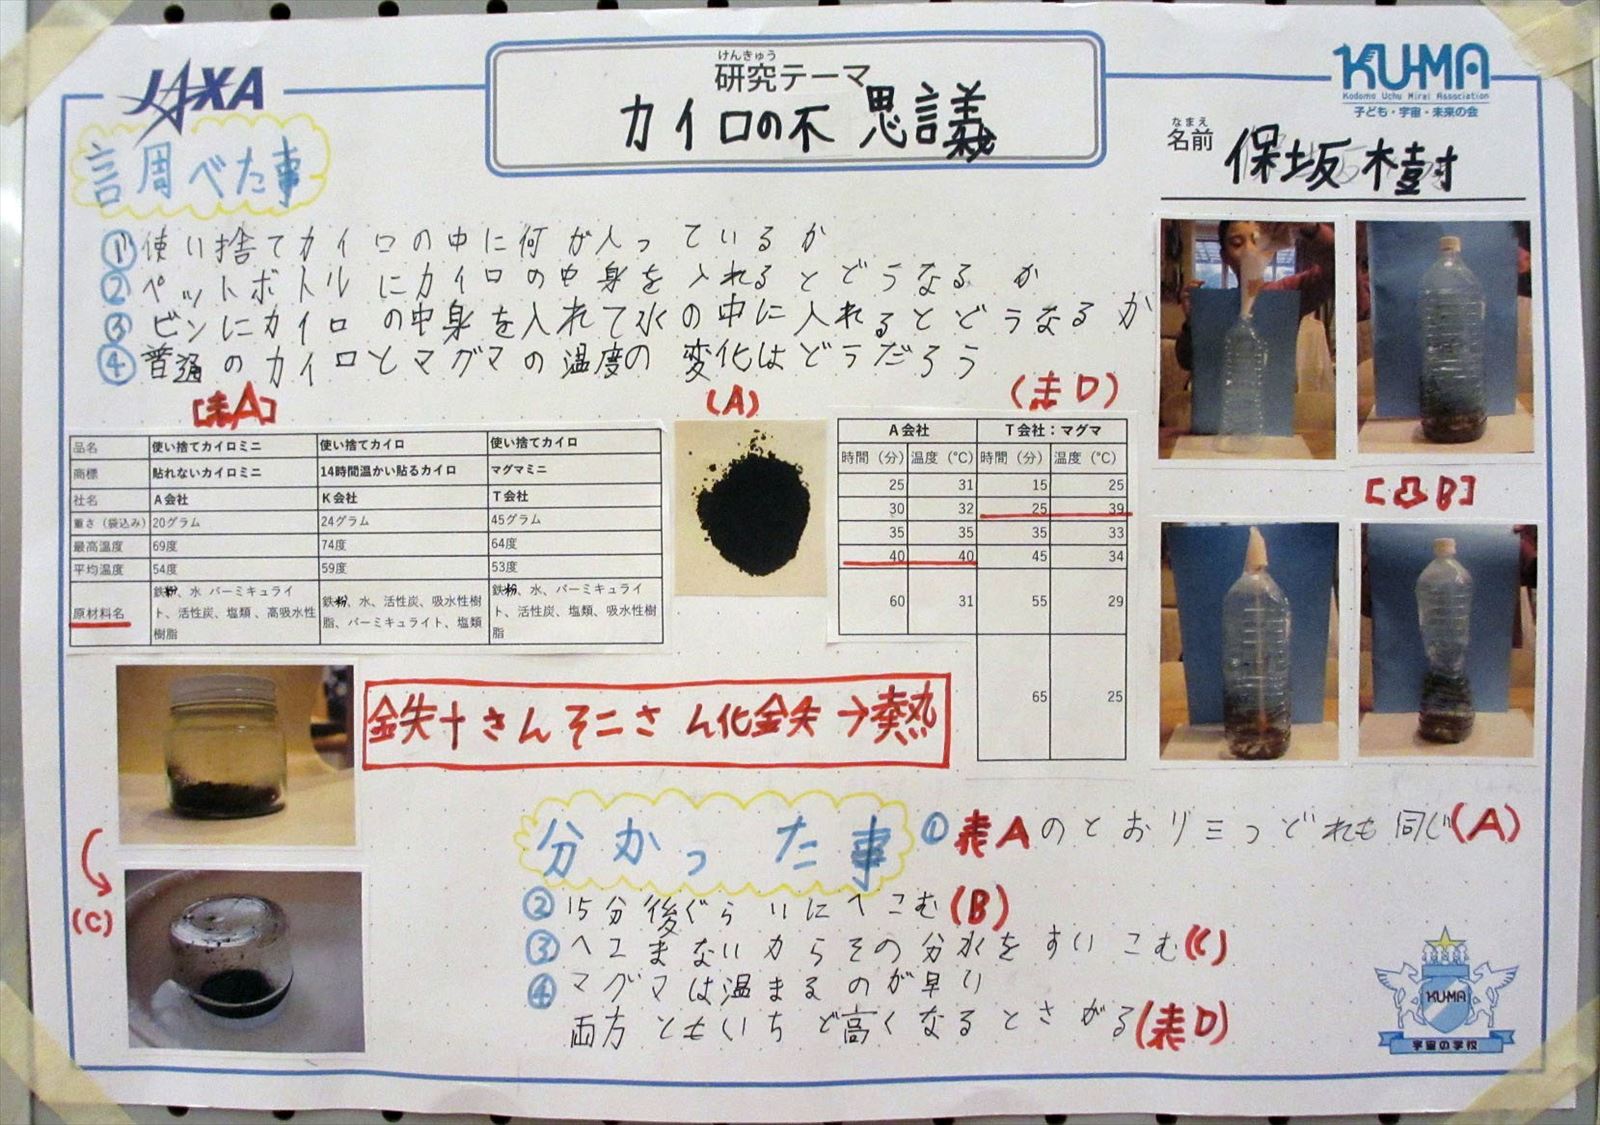 JAXA
けんきゅう
研究テーマ
カイロの不思議
KU-MA
Kodomo Uchu Mirai Association
子ども・宇宙・未来の会
なまえ
名前 保坂樹
調べた事
① 使い捨てカイロの中に何が入っているか
② ペットボトルにカイロの中身を入れるとどうなるか
③ ビンにカイロの中身を入れて水の中に入れるとどうなるか
④ 普通のカイロとマグマの温度の変化はどうだろう
[表A]
品名 使い捨てカイロミニ 使い捨てカイロ 使い捨てカイロ
商標 貼れないカイロミニ 14時間温かい貼るカイロ マグマミニ
社名 A会社 K会社 T会社
重さ（袋込み） 20グラム 24グラム 45グラム
最高温度 69度 74度 64度
平均温度 54度 59度 53度
原材料名
鉄粉、水 バーミキュライ
ト、活性炭、塩類 、高吸水性
樹脂
鉄粉、水、活性炭、吸水性樹
脂、バーミキュライト、塩類
鉄粉、水、バーミキュライ
ト、活性炭、塩類、吸水性樹
脂
(A)
(表D)
A会社 T会社：マグマ
時間（分） 温度（℃） 時間（分） 温度（℃）
25 31 15 25
30 32 25 39
35 35 35 33
40 40 45 34
60 31 55 29
65 25
[凸B]
鉄+さんそ=さん化鉄→熱
(C)
分かった事
① 表Aのとおり三つどれも同じ(A)
② 15分後ぐらいにへこむ(B)
③ へこまないからその分水をすいこむ(C)
④ マグマは温まるのが早い
両方ともいちど高くなるとさがる(表D)
KUMA
宇宙の学校